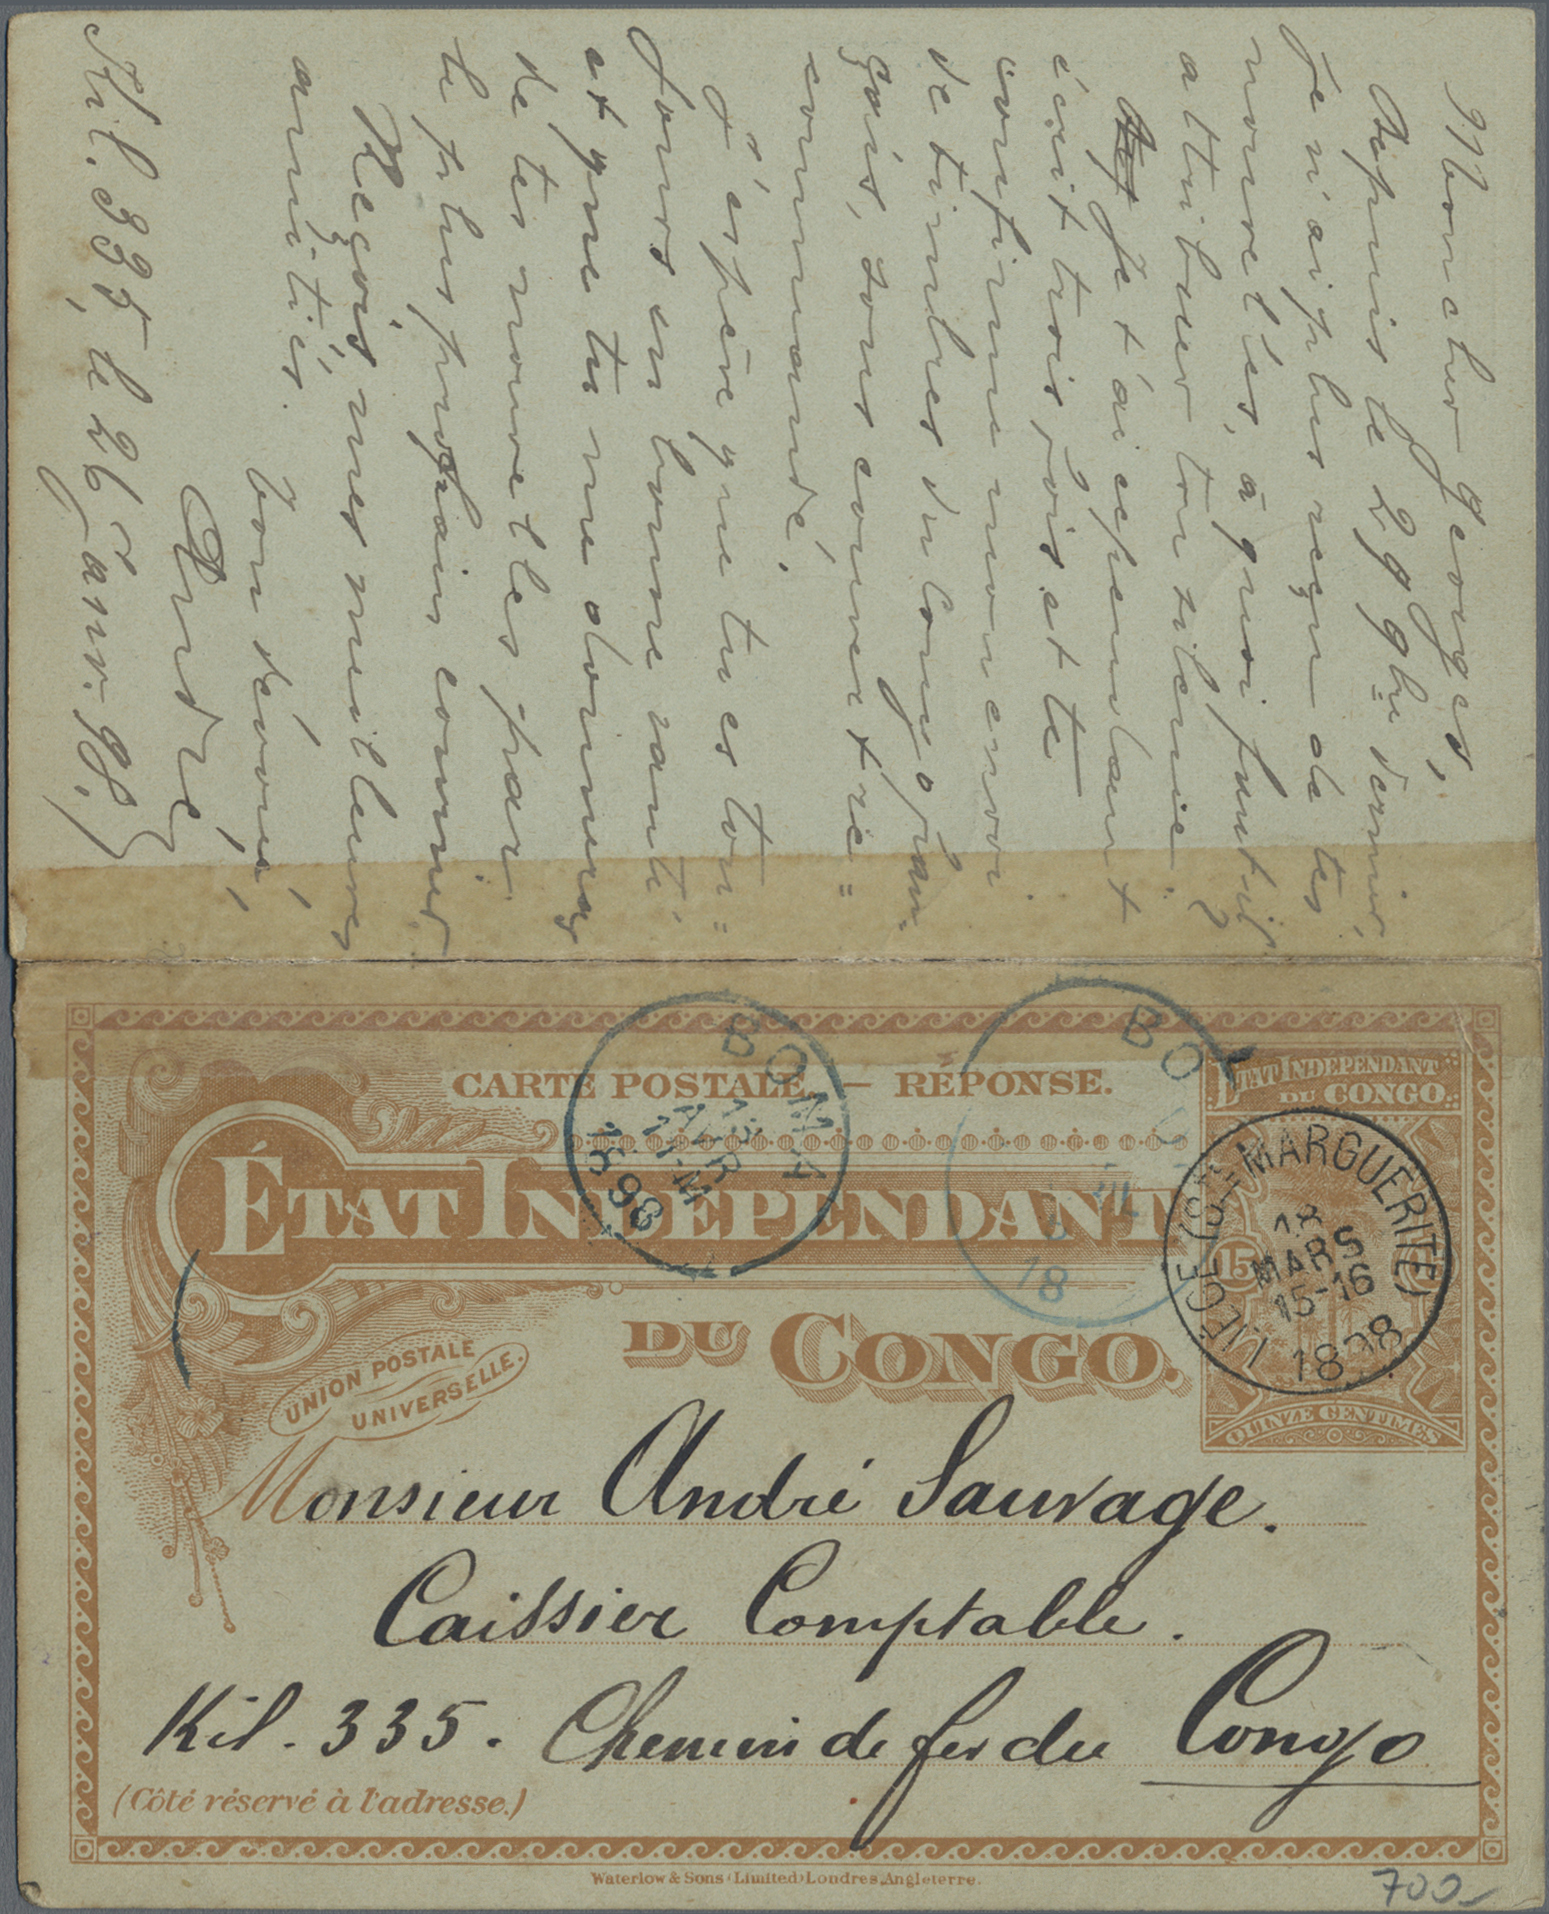 Mon cher georges,
Depuis le 29 9bre dernier,
je n'ai plus reçu de tes
nouvelles, à quoi faut-il
attribuer ton silence?
Je t'ai cependant
écrit trois fois et te
confirme mon envoi
de timbres du Congo fran-
çais, sous couvert re=
commandé.
J'espère que tu es ton=
jours en bonne santé
et que tu me donneras
de tes nouvelles par
le plus prochain courrier.
Reçois mes meilleures
amitiés.
ton dévoué,
André
Kil. 335, le 26 Janv. 98.
CARTE POSTALE. — RÉPONSE.
ÉTAT INDÉPENDANT
DU CONGO.
UNION POSTALE
UNIVERSELLE.
ÉTAT INDÉPENDANT
DU CONGO.
15
QUINZE CENTIMES
BOMA
13
AVR
7-M
1898
BO
18
LIÉGE (Ste-MARGUERITE)
18
MARS
15-16
1898
Monsieur André Sauvage.
Caissier Comptable.
Kil. 335. Chemin de fer du Congo
(Côté réservé à l'adresse.)
Waterlow & Sons (Limited) Londres, Angleterre.
700-